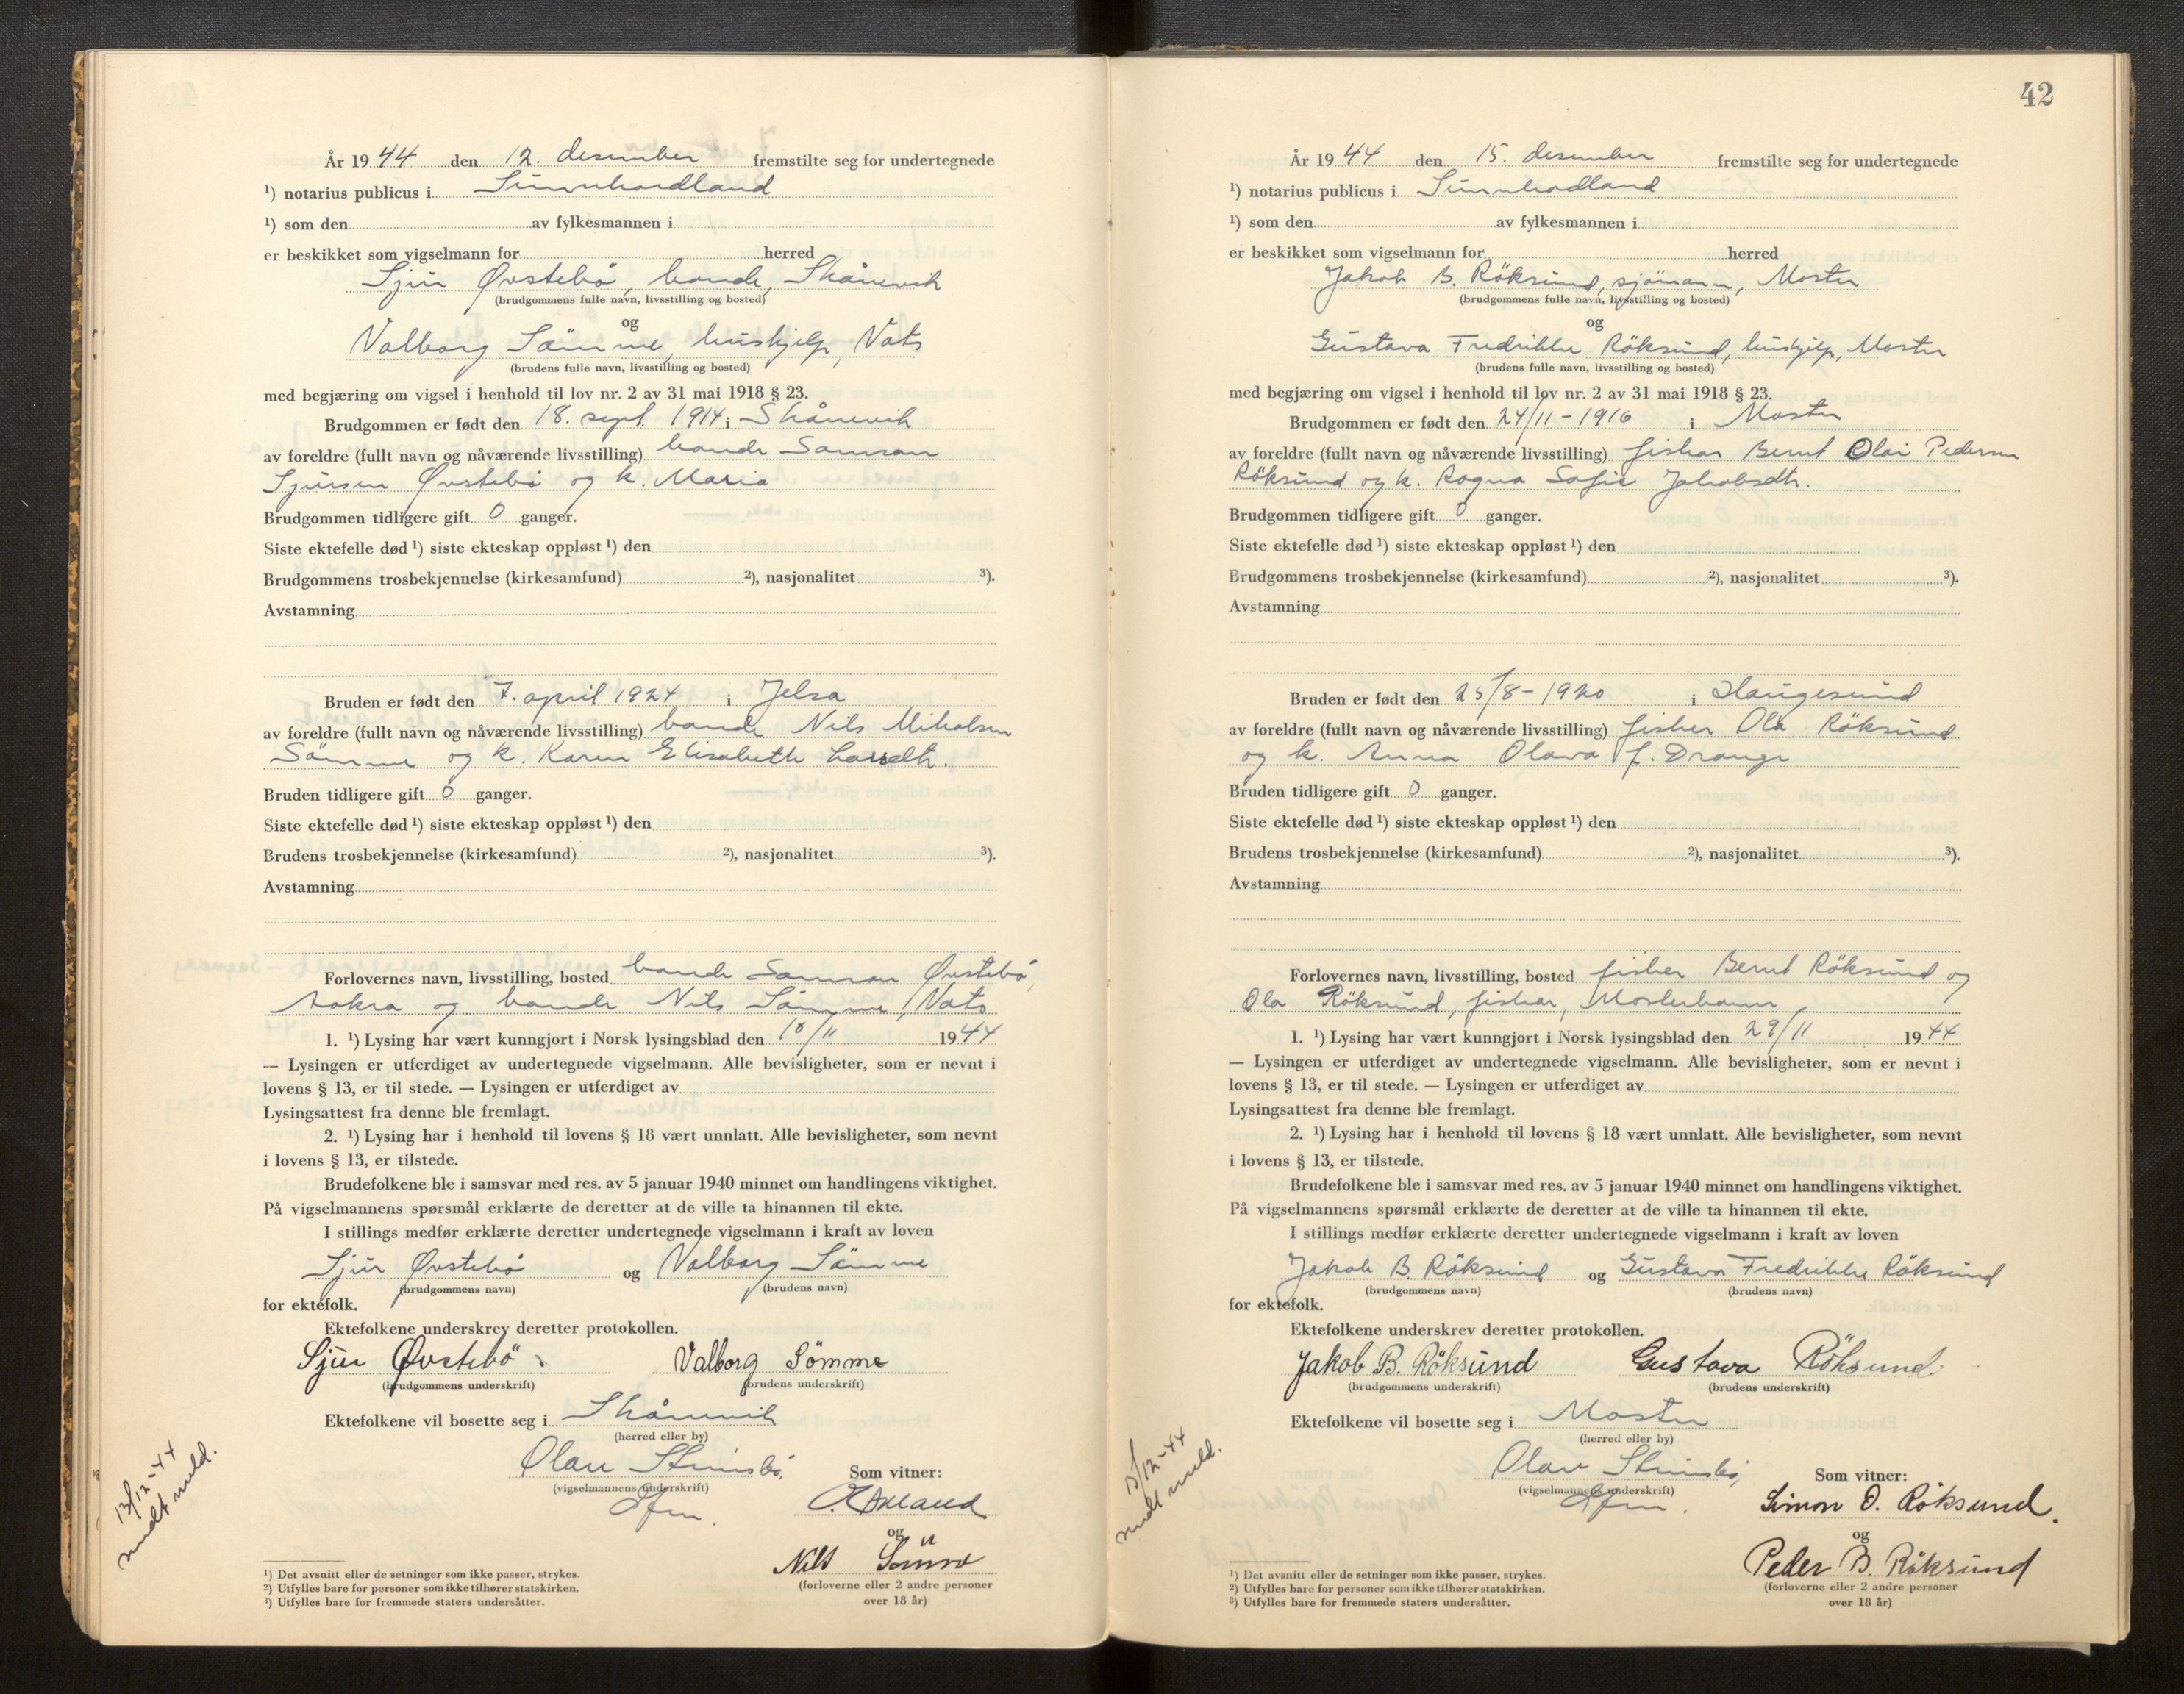 År 19 44 den 12. desember fremstilte seg for undertegnede
¹) notarius publicus i Sunnhordland
¹) som den av fylkesmannen i
er beskikket som vigselmann for herred
Sjur Øvstebö, bonde, Skånevik
(brudgommens fulle navn, livsstilling og bosted)
og
Valborg Sömme, hushjelp, Vats
(brudens fulle navn, livsstilling og bosted)
med begjæring om vigsel i henhold til lov nr. 2 av 31 mai 1918 § 23.
Brudgommen er født den 18. sept. 1914 i Skånevik
av foreldre (fullt navn og nåværende livsstilling) bonde Samson
Sjursen Øvstebö og k. Maria
Brudgommen tidligere gift 0 ganger.
Siste ektefelle død ¹) siste ekteskap oppløst ¹) den
Brudgommens trosbekjennelse (kirkesamfund) ²), nasjonalitet ³).
Avstamning
Bruden er født den 7. april 1924 i Jelsa
av foreldre (fullt navn og nåværende livsstilling) bonde Nils Mikalsen
Sömme og k. Karen Elisabeth Larsdtr.
Bruden tidligere gift 0 ganger.
Siste ektefelle død ¹) siste ekteskap oppløst ¹) den
Brudens trosbekjennelse (kirkesamfund) ²), nasjonalitet ³).
Avstamning
Forlovernes navn, livsstilling, bosted bonde Samson Øvstebö,
Aakra og bonde Nils Sömme, Vats
1. ¹) Lysing har vært kunngjort i Norsk lysingsblad den 18/11 19 44
— Lysingen er utferdiget av undertegnede vigselmann. Alle bevisligheter, som er nevnt i
lovens § 13, er til stede. — Lysingen er utferdiget av
Lysingsattest fra denne ble fremlagt.
2. ¹) Lysing har i henhold til lovens § 18 vært unnlatt. Alle bevisligheter, som nevnt
i lovens § 13, er tilstede.
Brudefolkene ble i samsvar med res. av 5 januar 1940 minnet om handlingens viktighet.
På vigselmannens spørsmål erklærte de deretter at de ville ta hinannen til ekte.
I stillings medfør erklærte deretter undertegnede vigselmann i kraft av loven
Sjur Øvstebö og Valborg Sömme
(brudgommens navn) (brudens navn)
for ektefolk.
Ektefolkene underskrev deretter protokollen.
Sjur Øvstebö Valborg Sömme
(brudgommens underskrift) (brudens underskrift)
Ektefolkene vil bosette seg i Skånevik
(herred eller by)
Olav
(vigselmannens underskrift)
Som vitner:
og
Nils
(forloverne eller 2 andre personer
over 18 år)
13/12-44
meldt
¹) Det avsnitt eller de setninger som ikke passer, strykes.
²) Utfylles bare for personer som ikke tilhører statskirken.
³) Utfylles bare for fremmede staters undersåtter.
42
År 19 44 den 15. desember fremstilte seg for undertegnede
¹) notarius publicus i Sunnhordland
¹) som den av fylkesmannen i
er beskikket som vigselmann for herred
Jakob B. Röksund, sjömann, Moster
(brudgommens fulle navn, livsstilling og bosted)
og
Gustava Fredrikke Röksund, hushjelp, Moster
(brudens fulle navn, livsstilling og bosted)
med begjæring om vigsel i henhold til lov nr. 2 av 31 mai 1918 § 23.
Brudgommen er født den 24/11-1916 i Moster
av foreldre (fullt navn og nåværende livsstilling) fisker Bernt Olai Pedersen
Röksund og k. Ragna Sofie Jakobsdtr.
Brudgommen tidligere gift 0 ganger.
Siste ektefelle død ¹) siste ekteskap oppløst ¹) den
Brudgommens trosbekjennelse (kirkesamfund) ²), nasjonalitet ³).
Avstamning
Bruden er født den 25/8-1920 i Haugesund
av foreldre (fullt navn og nåværende livsstilling) fisker Ola Röksund
og k. Anna Olava f. Drange
Bruden tidligere gift 0 ganger.
Siste ektefelle død ¹) siste ekteskap oppløst ¹) den
Brudens trosbekjennelse (kirkesamfund) ²), nasjonalitet ³).
Avstamning
Forlovernes navn, livsstilling, bosted fisker Bernt Röksund og
Ola Röksund, fisker, Mosterhamn
1. ¹) Lysing har vært kunngjort i Norsk lysingsblad den 29/11 19 44
— Lysingen er utferdiget av undertegnede vigselmann. Alle bevisligheter, som er nevnt i
lovens § 13, er til stede. — Lysingen er utferdiget av
Lysingsattest fra denne ble fremlagt.
2. ¹) Lysing har i henhold til lovens § 18 vært unnlatt. Alle bevisligheter, som nevnt
i lovens § 13, er tilstede.
Brudefolkene ble i samsvar med res. av 5 januar 1940 minnet om handlingens viktighet.
På vigselmannens spørsmål erklærte de deretter at de ville ta hinannen til ekte.
I stillings medfør erklærte deretter undertegnede vigselmann i kraft av loven
Jakob B. Röksund og Gustava Fredrikke Röksund
(brudgommens navn) (brudens navn)
for ektefolk.
Ektefolkene underskrev deretter protokollen.
Jakob B. Röksund Gustava Röksund
(brudgommens underskrift) (brudens underskrift)
Ektefolkene vil bosette seg i Moster
(herred eller by)
Olav
(vigselmannens underskrift)
Som vitner:
Simon O. Röksund.
og
Peder B. Röksund
(forloverne eller 2 andre personer
over 18 år)
¹) Det avsnitt eller de setninger som ikke passer, strykes.
²) Utfylles bare for personer som ikke tilhører statskirken.
³) Utfylles bare for fremmede staters undersåtter.